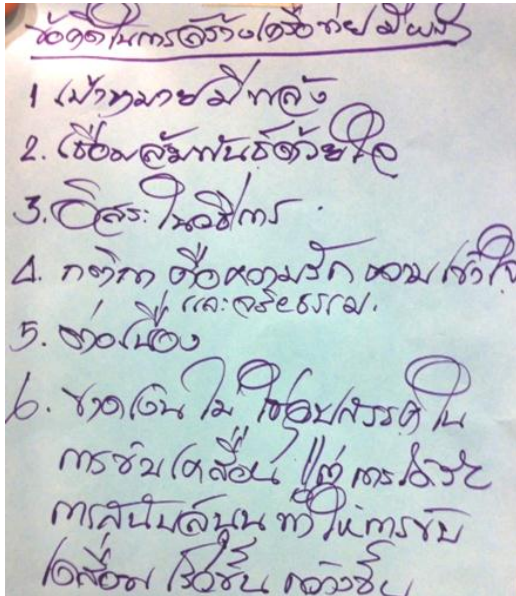 ข้อคิดในการสร้างเครือข่าย มีพลัง
1 เป้าหมายมีพลัง
2. เชื่อมสัมพันธ์ด้วยใจ
3. อิสระในวิธีการ
4. กติกา คือความรัก ความเข้าใจ
และจริยธรรม.
5. ต่อเนื่อง
6. ขาดเงิน ไม่ใช่อุปสรรคใน
การขับเคลื่อน แต่ การได้รับ
การสนับสนุน ทำให้การขับ
เคลื่อน เร็วขึ้น กว้างขึ้น